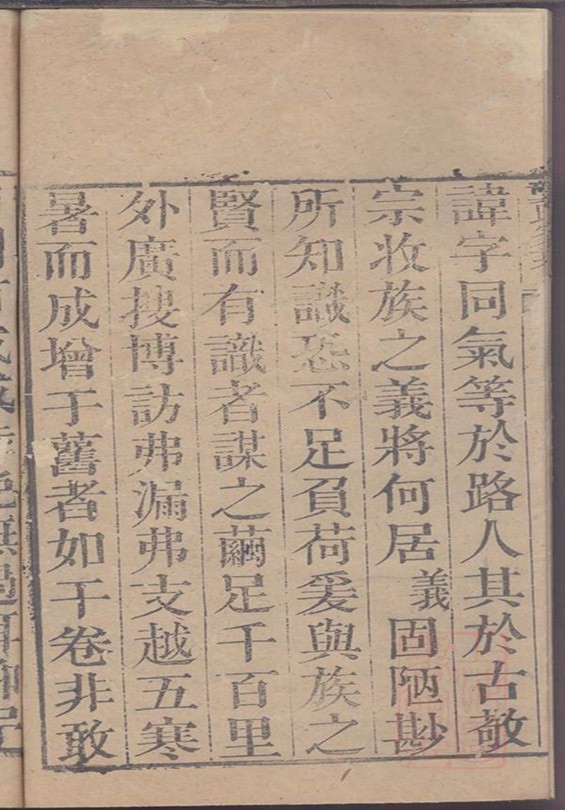 諱字同氣等於路人其於古敬
宗收族之義將何居義固陋尠
所知識恐不足負荷爰與族之
賢而有識者謀之繭足千百里
外廣搜博訪弗漏弗支越五寒
暑而成增于舊者如干卷非敢